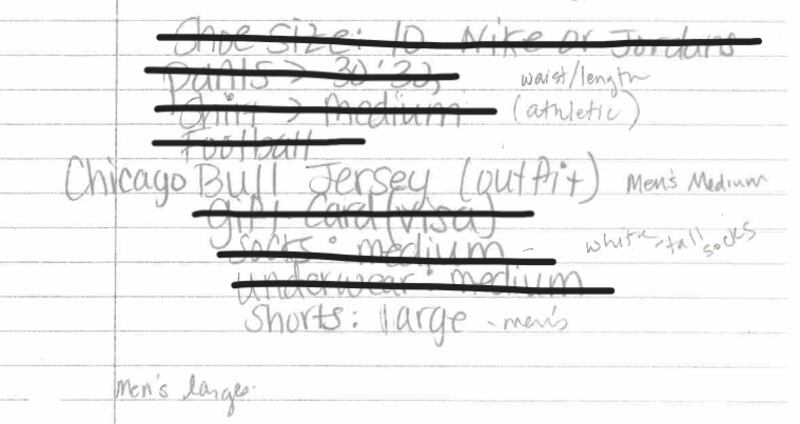 Shoe size: 10 Nike or Jordans
pants > 30:32, waist/length
shirt > medium (athletic)
Football
Chicago Bull Jersey (outfit) Men's Medium
gift card (visa)
socks: medium - white-tall socks
underwear: medium
Shorts: large - men's
Men's large.